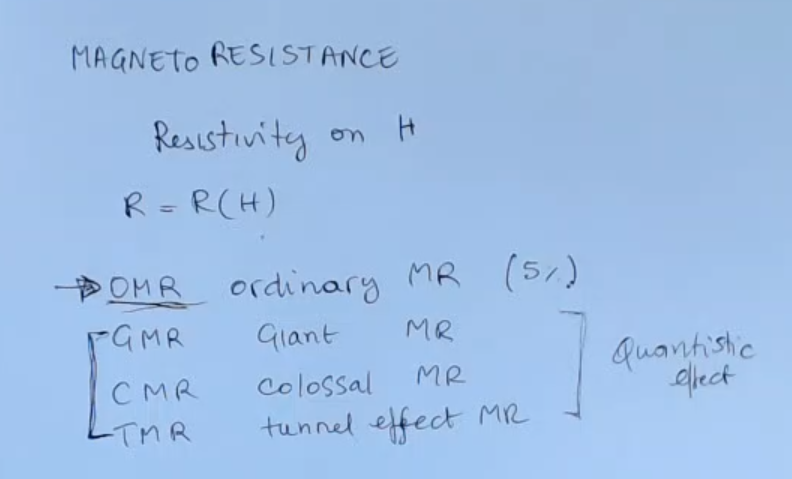 MAGNETO RESISTANCE
Resistivity on H
R = R(H)
OMR ordinary MR (5%)
GMR Giant MR
CMR colossal MR
TMR tunnel effect MR
Quantistic
effect